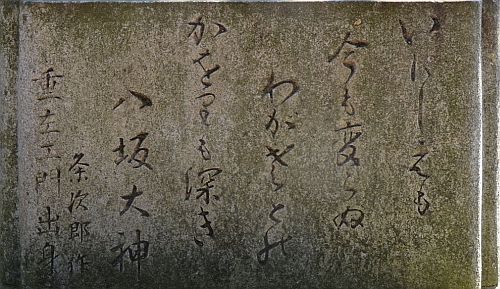 いにしえも
今も変らぬ
わがさとの
かをりも深き
八坂大神
次郎作
左エ門 出身